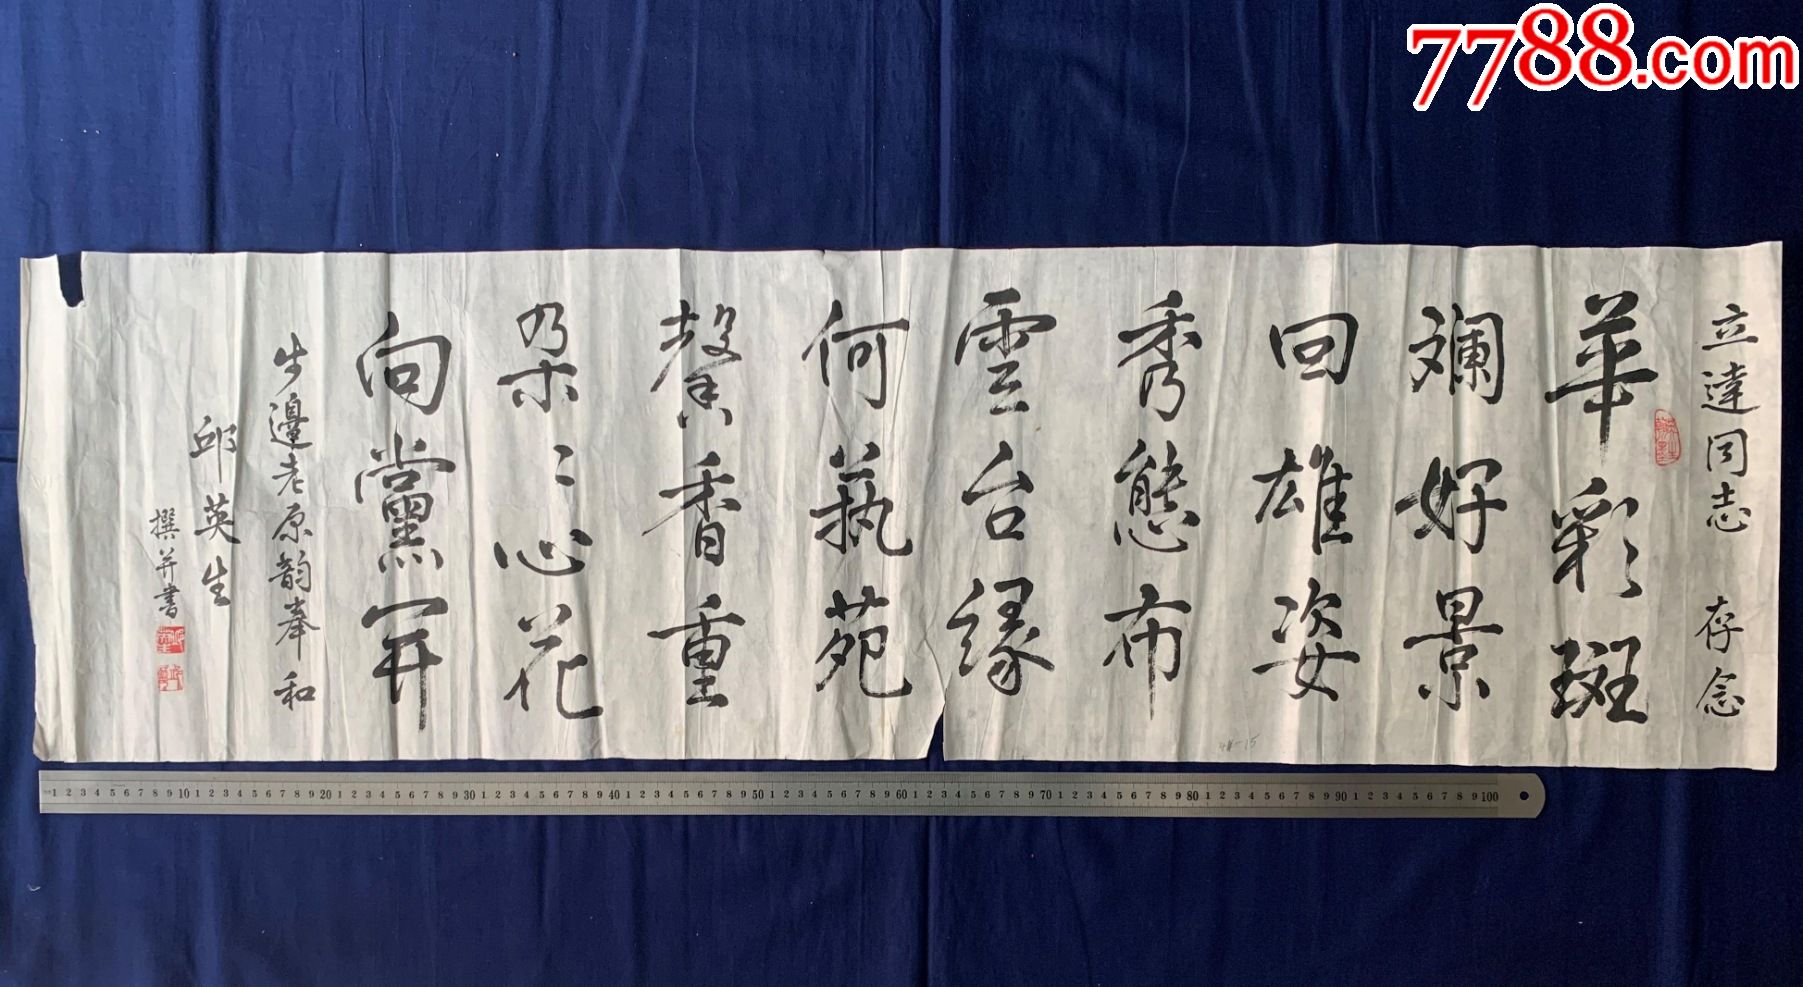 7788.com
立達同志 存念
華彩斑
斕好景
回雄姿
秀態布
雲台緣
何蓺苑
馨香重
朵々心花
向黨開
步邊老原韵奉和
邱英生
撰并書
1 2 3 4 5 6 7 8 9 10 1 2 3 4 5 6 7 8 9 20 1 2 3 4 5 6 7 8 9 30 1 2 3 4 5 6 7 8 9 40 1 2 3 4 5 6 7 8 9 50 1 2 3 4 5 6 7 8 9 60 1 2 3 4 5 6 7 8 9 70 1 2 3 4 5 6 7 8 9 80 1 2 3 4 5 6 7 8 9 90 1 2 3 4 5 6 7 8 9 100